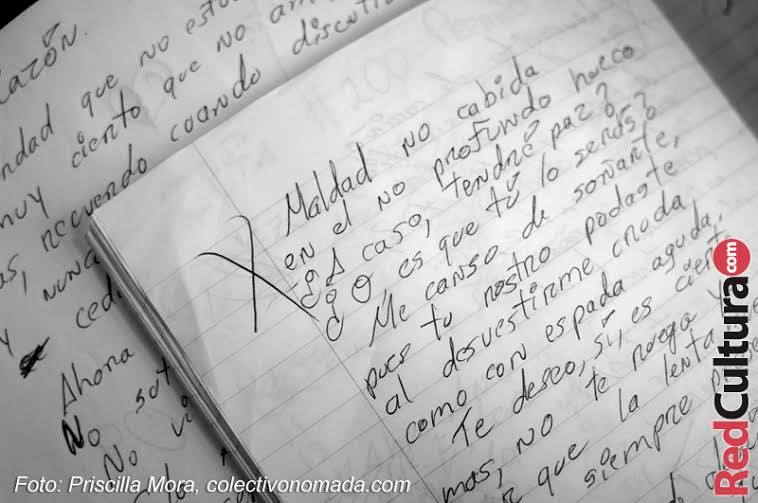 razón.
ndad que no esto
muy cierto que no am
s, recuerdo cuando discutí
nunca
y cedi
Ahora
No sot
No vi
Maldad no cabida
en el no profundo hueco
¿A caso, tendré paz?
¿O es que tú lo serás?
Me canso de soñarte,
pues tu rostro podaste
al desvestirme cruda,
como con espada aguda,
Te deseo, sí, es ciert
mas, no te ruega
que la lenta
siempre
RedCultura.com
Foto: Priscilla Mora, colectivonomada.com